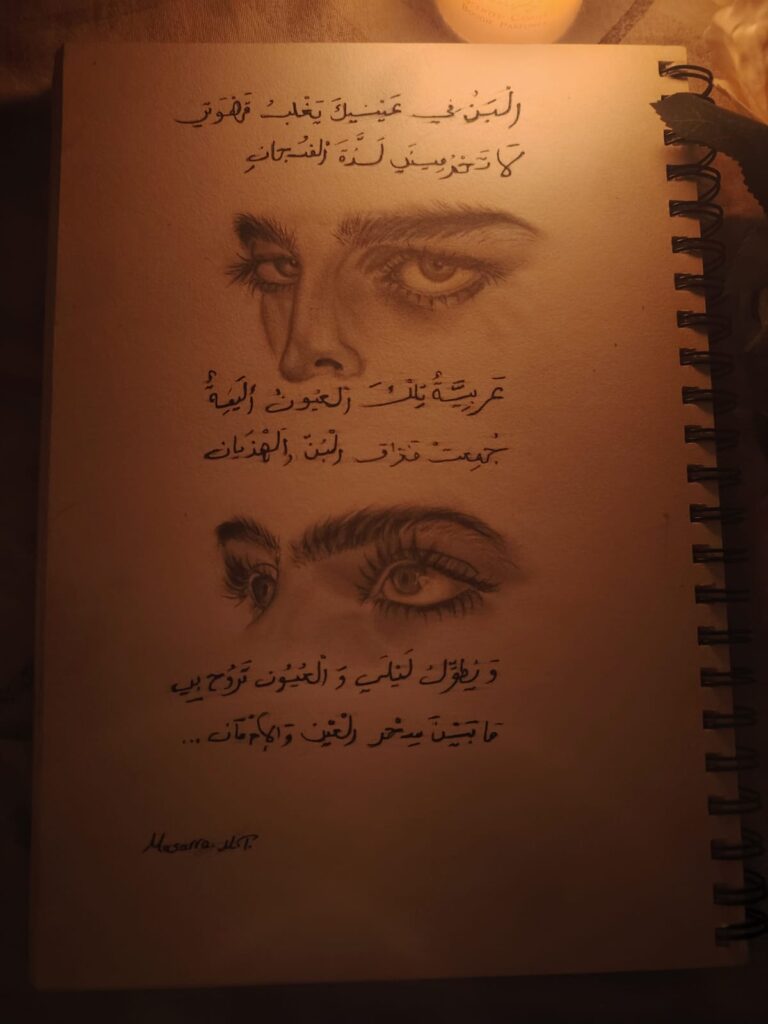 الْبَنُ في عَيْنيكَ يَغْلبُ قَهْوَتي
لَا تَحْرُمِيني لَذَّةَ الْفنْجانِ
عَربيَّةٌ تِلْكَ الْعُيُونُ أليفةٌ
جُمِعتْ مَذاق الْبُنّ والْهْذَيان
وَيُطوِّلُ لَيْلي وَ الْعُيُون تَرُوح بِي
مَا بَيْنَ سِحْر الْعَيْن وَالإدْمَان ...
Masarra. M.T.